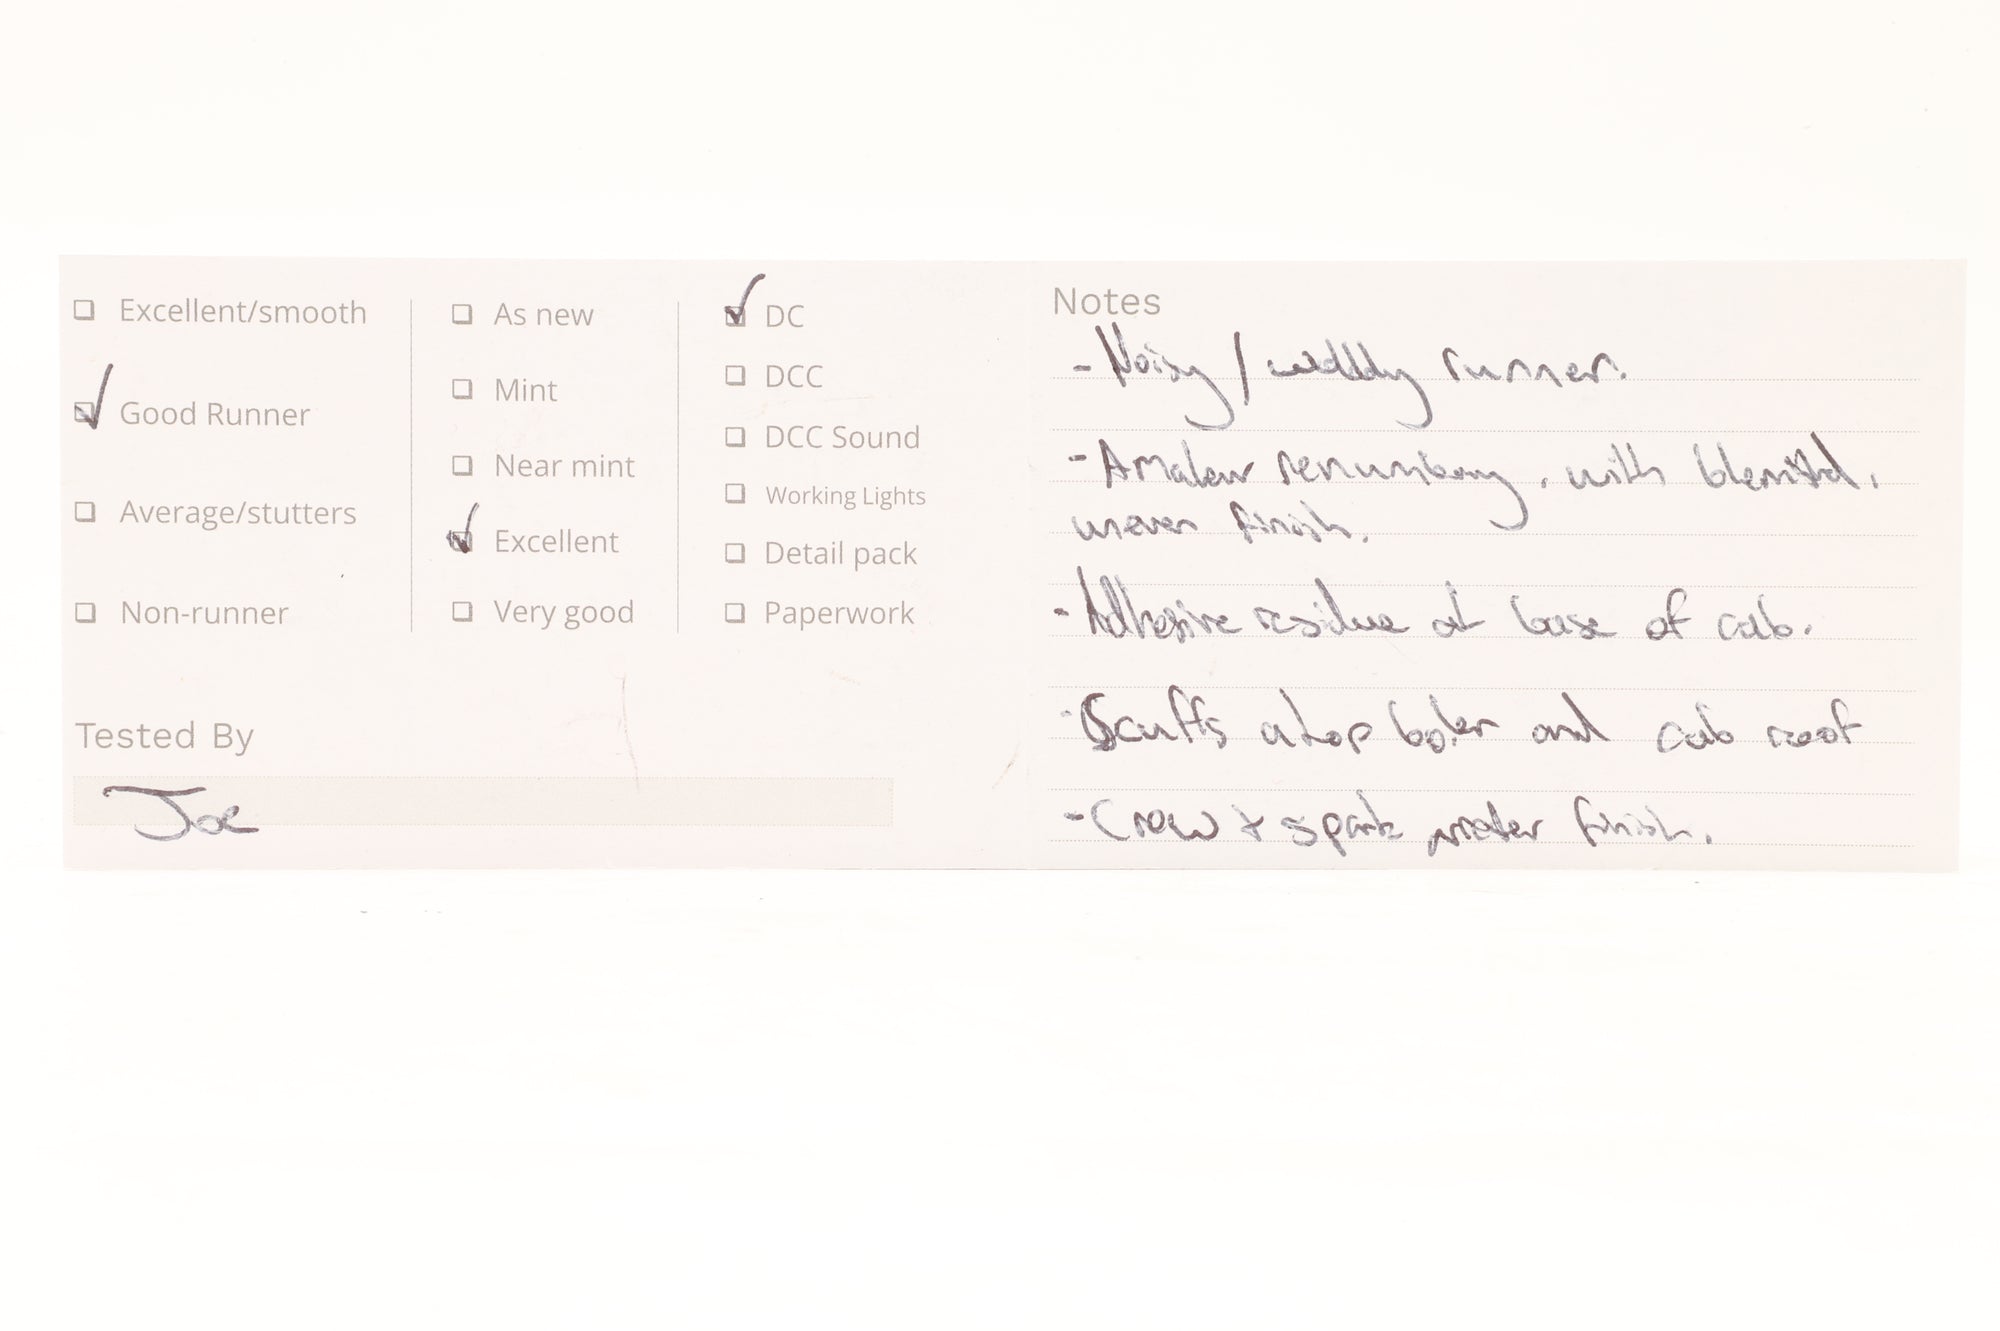 Excellent/smooth
Good Runner
Average/stutters
Non-runner
As new
Mint
Near mint
Excellent
Very good
DC
DCC
DCC Sound
Working Lights
Detail pack
Paperwork
Tested By
Joe
Notes
- Noisy / runner.
- Amateur renumbering, with blemished,
uneven finish.
- Adhesive residue at base of cab.
- Scuffs atop boiler and cab roof
- Crew + spark finish.